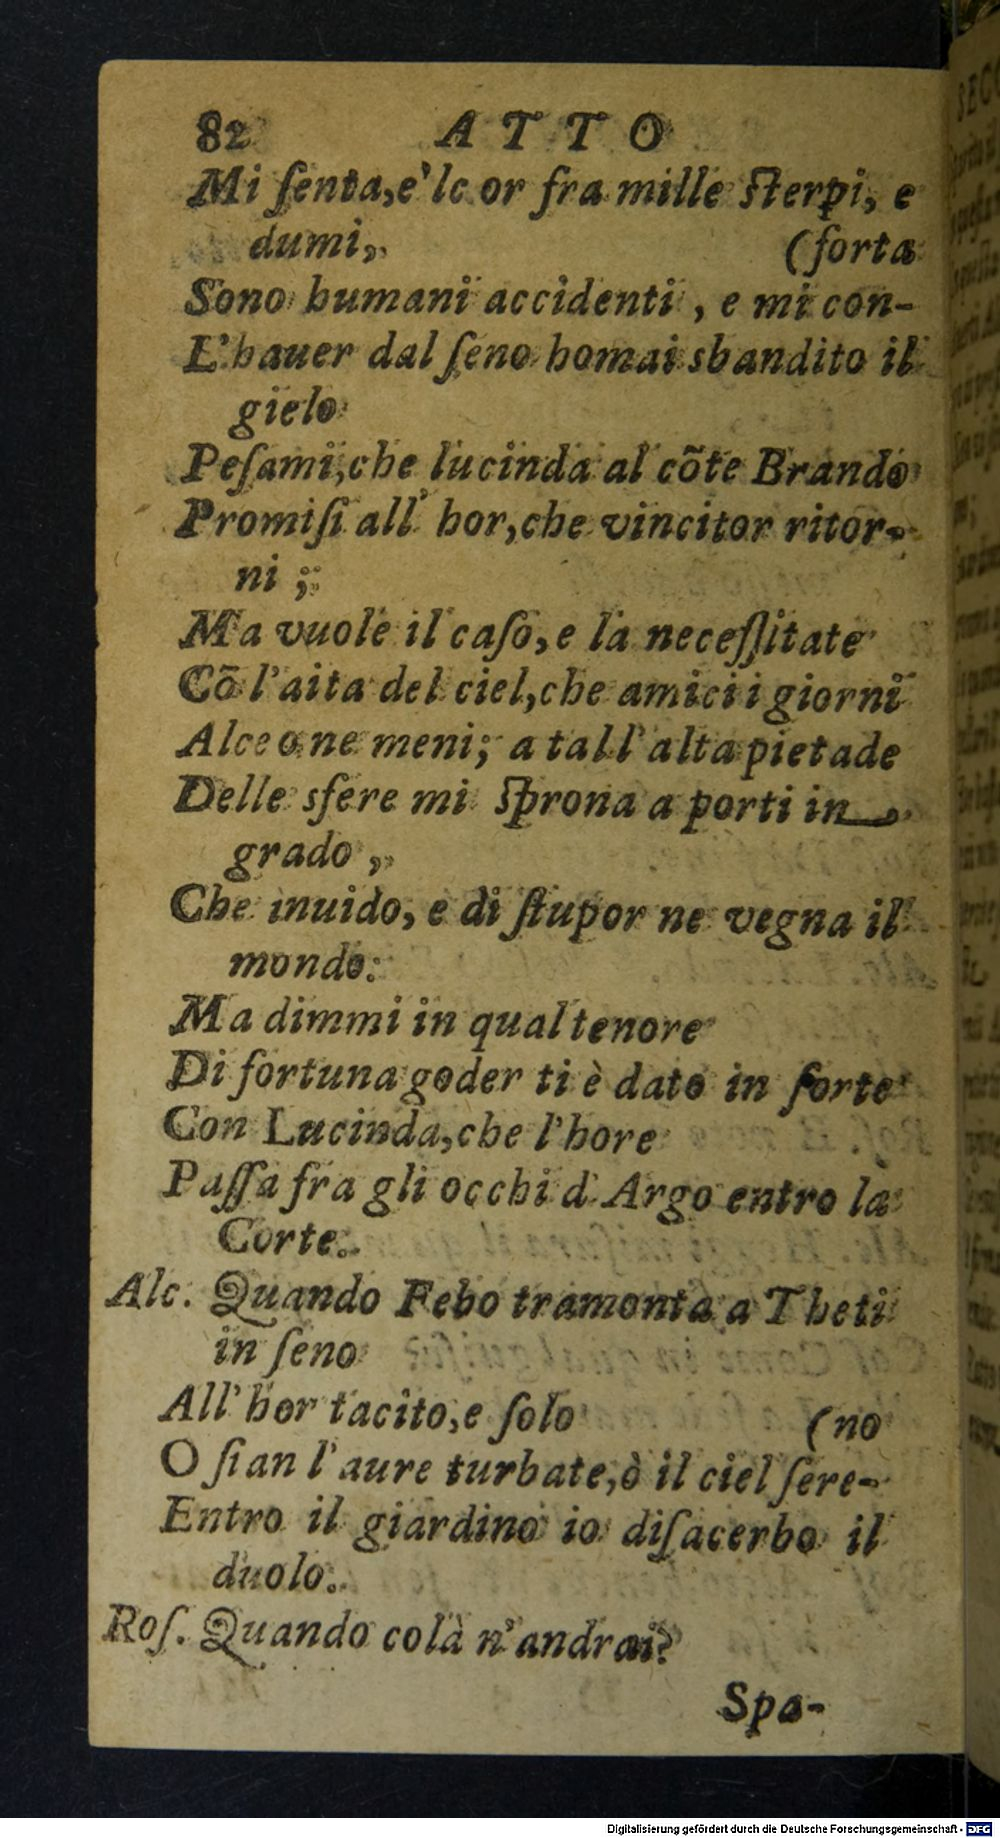 82 ATTO
Mi ſenta, e'lc or fra mille ſterpi, e
dumi, (forta
Sono humani accidenti, e mi con-
L'hauer dal ſeno homai sbandito il
gielo
Peſami, che lucinda al cõte Brando
Promiſi all' hor, che vincitor ritor-
ni;
Ma vuole il caſo, e la neceſſitate
Cõ l'aita del ciel, che amici i giorni
Alceo ne meni; a tal l'alta pietade
Delle sfere mi ſprona a porti in
grado,
Che inuido, e di ſtupor ne vegna il
mondo:
Ma dimmi in qual tenore
Di fortuna goder ti è dato in ſorte
Con Lucinda, che l'hore
Paſſa fra gli occhi d'Argo entro la
Corte.
Alc. Quando Febo tramonta a Theti
in ſeno
All'hor tacito, e ſolo (no
O ſian l'aure turbate, ò il ciel ſere-
Entro il giardino io diſacerbo il
duolo.
Roſ. Quando colà n'andrai?
Spa-
Digitalisierung gefördert durch die Deutsche Forschungsgemeinschaft - DFG